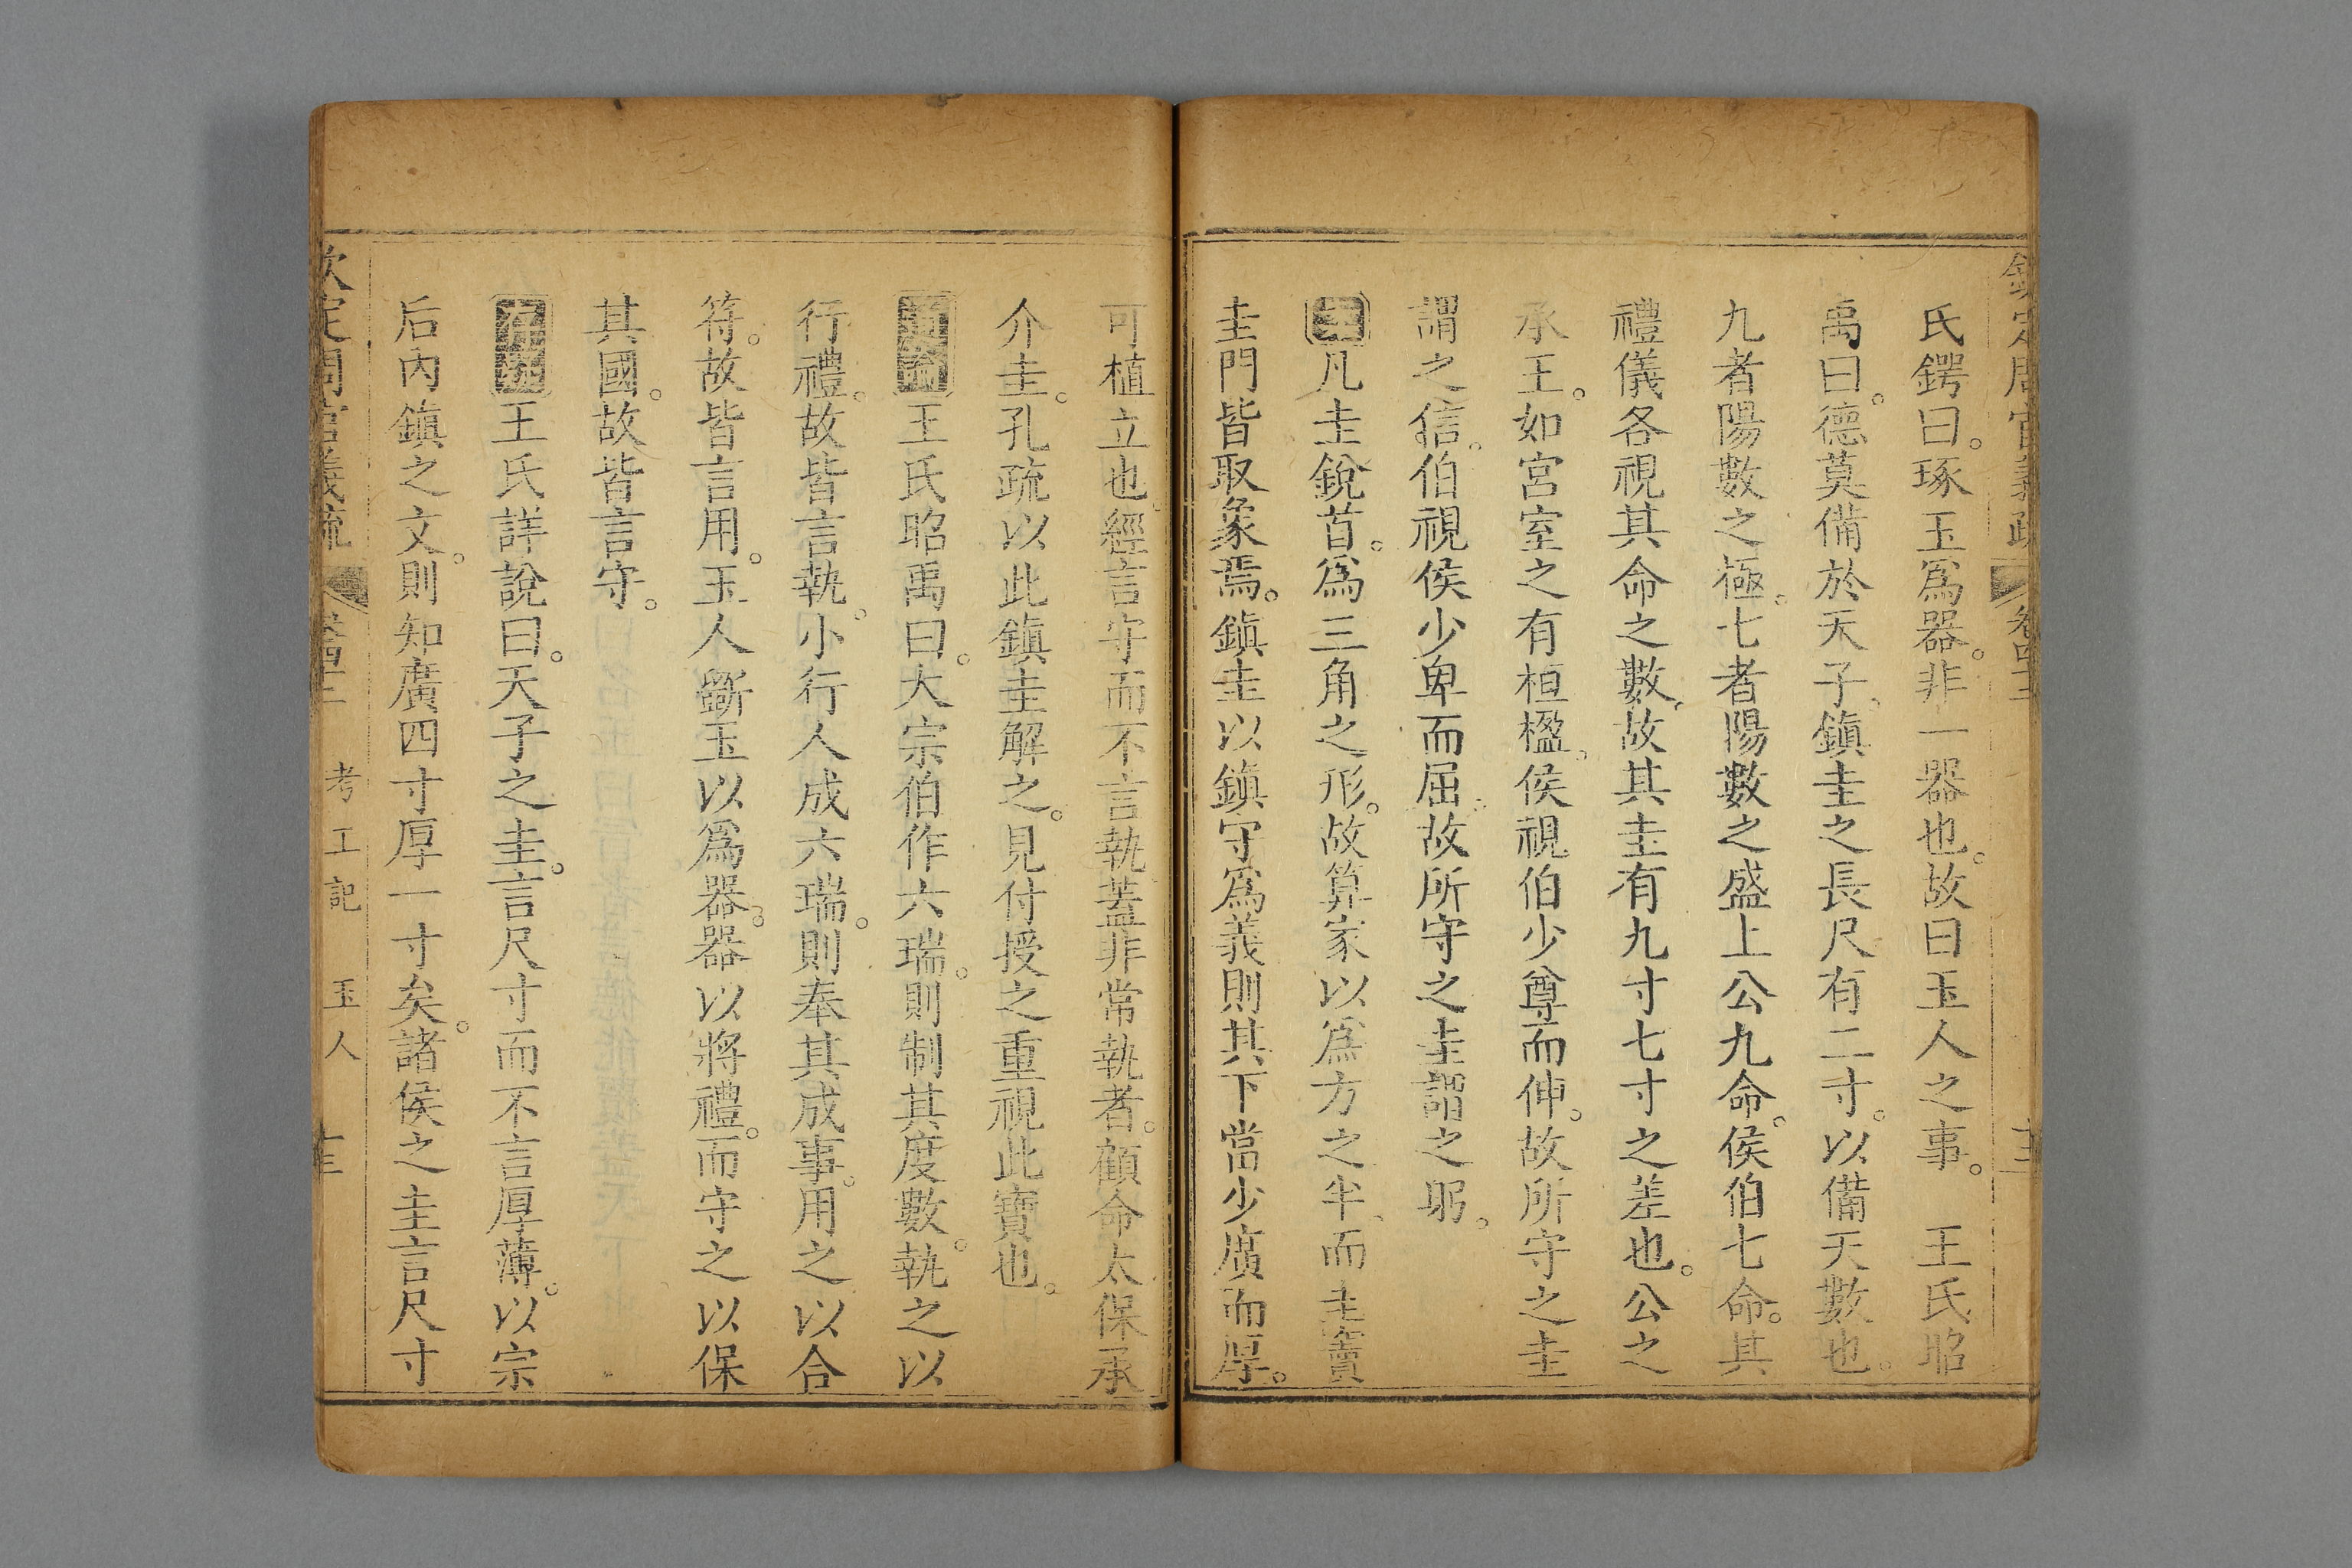 氏鍔曰。琢玉爲器。非一器也。故曰玉人之事。　王氏昭
禹曰。德莫備於天子。鎭圭之長尺有二寸。以備天數也。
九者陽數之極。七者陽數之盛上公九命。侯伯七命。其
禮儀各視其命之數。故其圭有九寸七寸之差也。公之
承王。如宮室之有桓楹。侯視伯少尊而伸。故所守之圭
謂之信。伯視侯少卑而屈。故所守之圭謂之躬。
凡圭銳首。爲三角之形。故算家以爲方之半。而圭竇
圭門皆取象焉。鎭圭以鎭守爲義則其下當少廣而厚。
可植立也。經言守而不言執蓋非常執者。顧命太保承
介圭。孔疏以此鎭圭解之。見付授之重視此寶也。
通論王氏昭禹曰。大宗伯作六瑞。則制其度數。執之以
行禮。故皆言執。小行人成六瑞。則奉其成事。用之以合
符。故皆言用。玉人斲玉以爲器。器以將禮。而守之以保
其國。故皆言守。
存疑王氏詳說曰。天子之圭。言尺寸而不言厚薄。以宗
后內鎭之文。則知廣四寸厚一寸矣。諸侯之圭言尺寸
欽定周官義疏　考工記　玉人